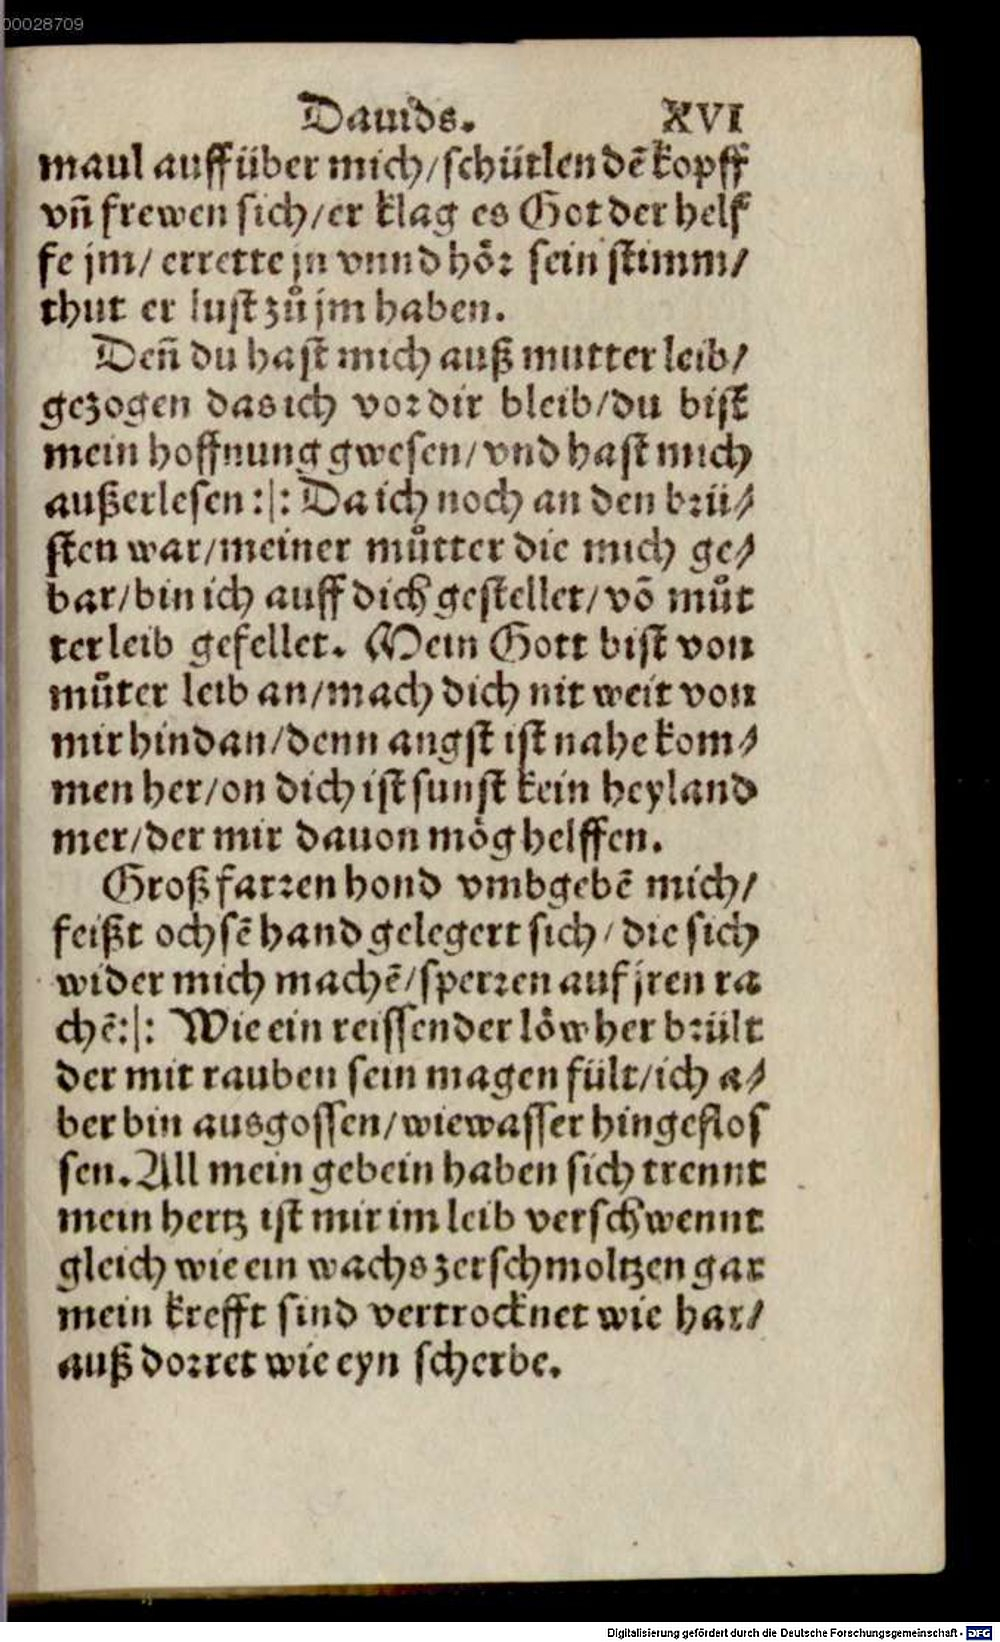 00028709
Dauids. XVI
maul auff über mich/schütlen dē kopff
vn̄ frewen sich/er klag es Got der helf
fe jm/ errette jn vnnd hoͤr sein stimm/
thut er lust zuͦ jm haben.
Den̄ du hast mich auß mutter leib/
gezogen das ich vor dir bleib/du bist
mein hoffnung gwesen/vnd hast mich
außerlesen :|: Da ich noch an den brü⸗
sten war/meiner muͦtter die mich ge⸗
bar/bin ich auff dich gestellet/vō muͦt
ter leib gefellet. Mein Gott bist von
muͦter leib an/mach dich nit weit von
mir hindan/denn angst ist nahe kom⸗
men her/on dich ist sunst kein heyland
mer/der mir dauon moͤg helffen.
Groß farren hond vmbgebē mich/
feißt ochsē hand gelegert sich/die sich
wider mich machē/sperren auf jren ra
chē:|: Wie ein reissender loͤw her brült
der mit rauben sein magen fült/ich a⸗
ber bin ausgossen/wie wasser hingeflos
sen. All mein gebein haben sich trennt
mein hertz ist mir im leib verschwennt
gleich wie ein wachs zerschmoltzen gar
mein krefft sind vertrocknet wie har/
auß dorret wie eyn scherbe.
Digitalisierung gefördert durch die Deutsche Forschungsgemeinschaft - DFG